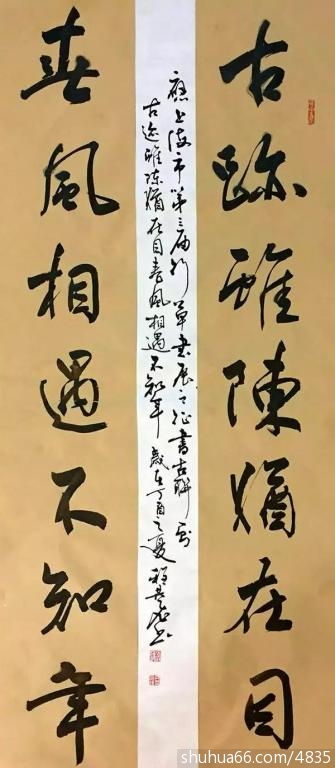 古跡雖陳猶在目
春風相遇不知年
應上海市第三届行草書展征書古聯
古迹雖陳猶在目春風相遇不知年 歲在丁酉之夏
shuhua66.com/4835